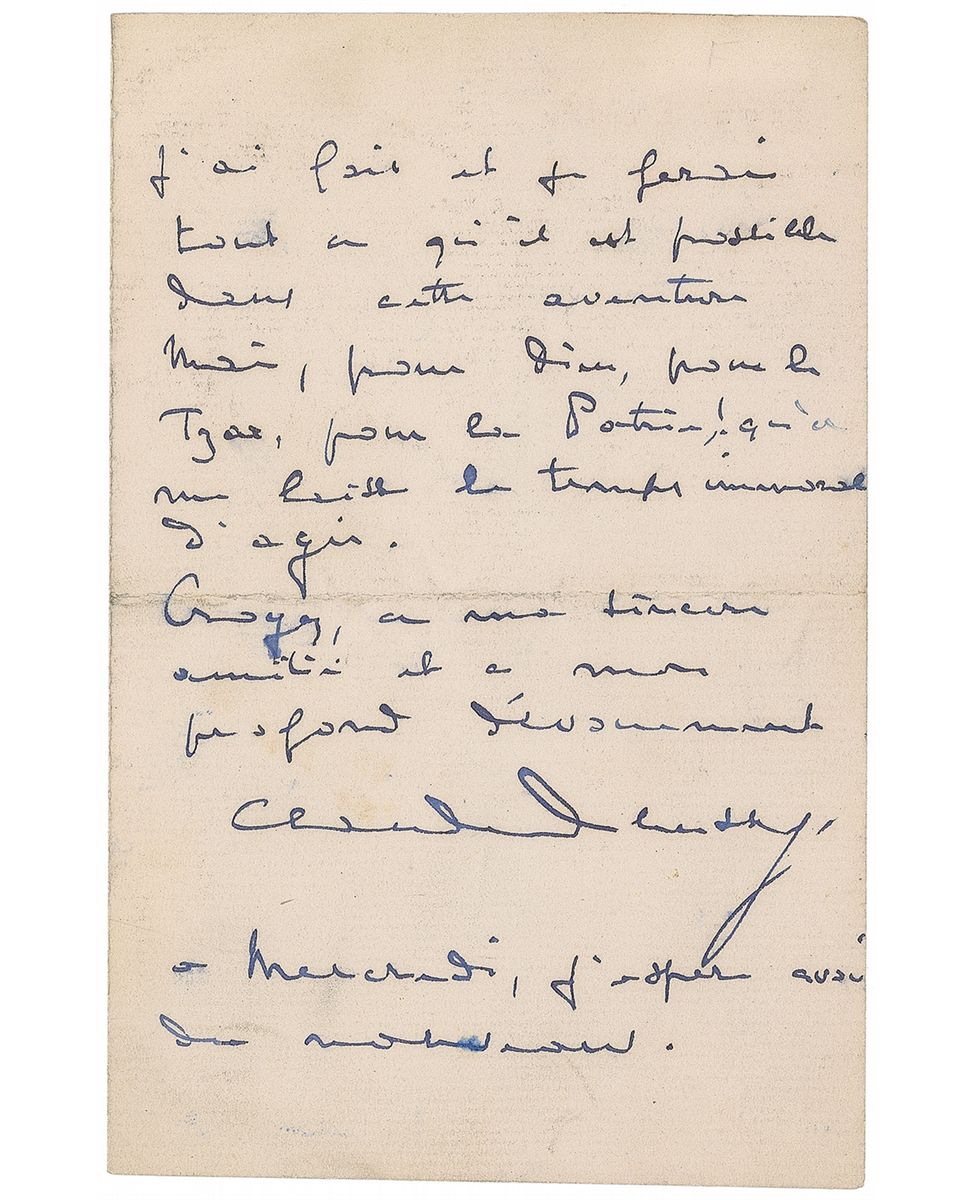 J'ai fait et je ferai
tout ce qu'il est possible
dans cette aventure
Mais, pour Dieu, pour le
Tzar, pour la Patrie! qu'on
me laisse le temps immoral
d'agir.
Croyez, a ma sincere
amitié et a mon
profond dévouement
Claude Debussy.
a Mercredi, j'espere avoir
du nouveau.